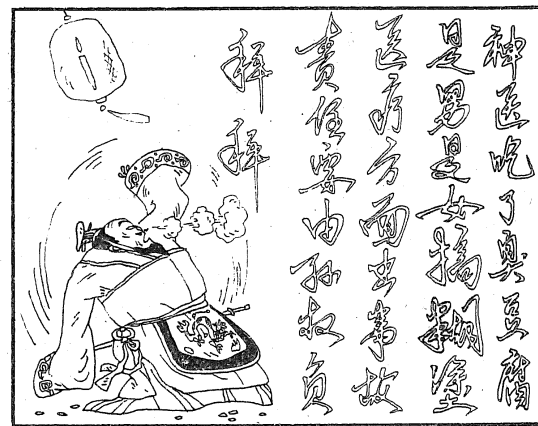 神医吃了臭豆腐
是男是女搞糊塗
医疗方面出事故
责任要由孙叔负
拜拜